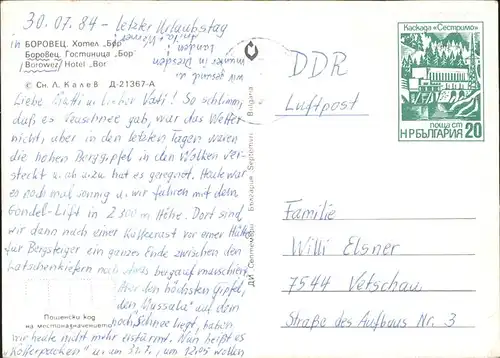 30.07.84 - Letzter Urlaubstag
in БОРОВЕЦ. Хотел „Бор"
Боровец. Гостиница „Бор"
Borowez / Hotel „Bor"
© Сн. Л. Калев Д-21367-А
Liebe Mutti u. lieber Vati! So schlimm,
daß es Neuschnee gab, war das Wetter
nicht, aber in den letzten Tagen waren
die hohen Berggipfel in den Wolken ver-
steckt u. ab u. zu hat es geregnet. Heute war
es noch mal sonnig u. wir fuhren mit dem
Gondel-Lift in 2300 m Höhe. Dort sind
wir dann nach einer Kaffeerast vor einer Hütte
für Bergsteiger ein ganzes Ende zwischen den
Latschenkiefern noch etwas bergauf marschiert.
Aber den höchsten Gipfel,
den „Mussala" auf dem
noch Schnee liegt, haben
wir heute nicht mehr erstürmt. Nun heißt es
„Kofferpacken" u. am 31.7., um 12.05 wollen
wir gesund u.
munter in Dresden
landen
Пощенски код
на местоназначението
ДП „Септември" България · Београд · Bulgaria
DDR
Luftpost
Каскада «Сестримо»
поща ст
НР БЪЛГАРИЯ 20
Familie
Willi Elsner
7544 Vetschau
Straße des Aufbaus Nr. 3